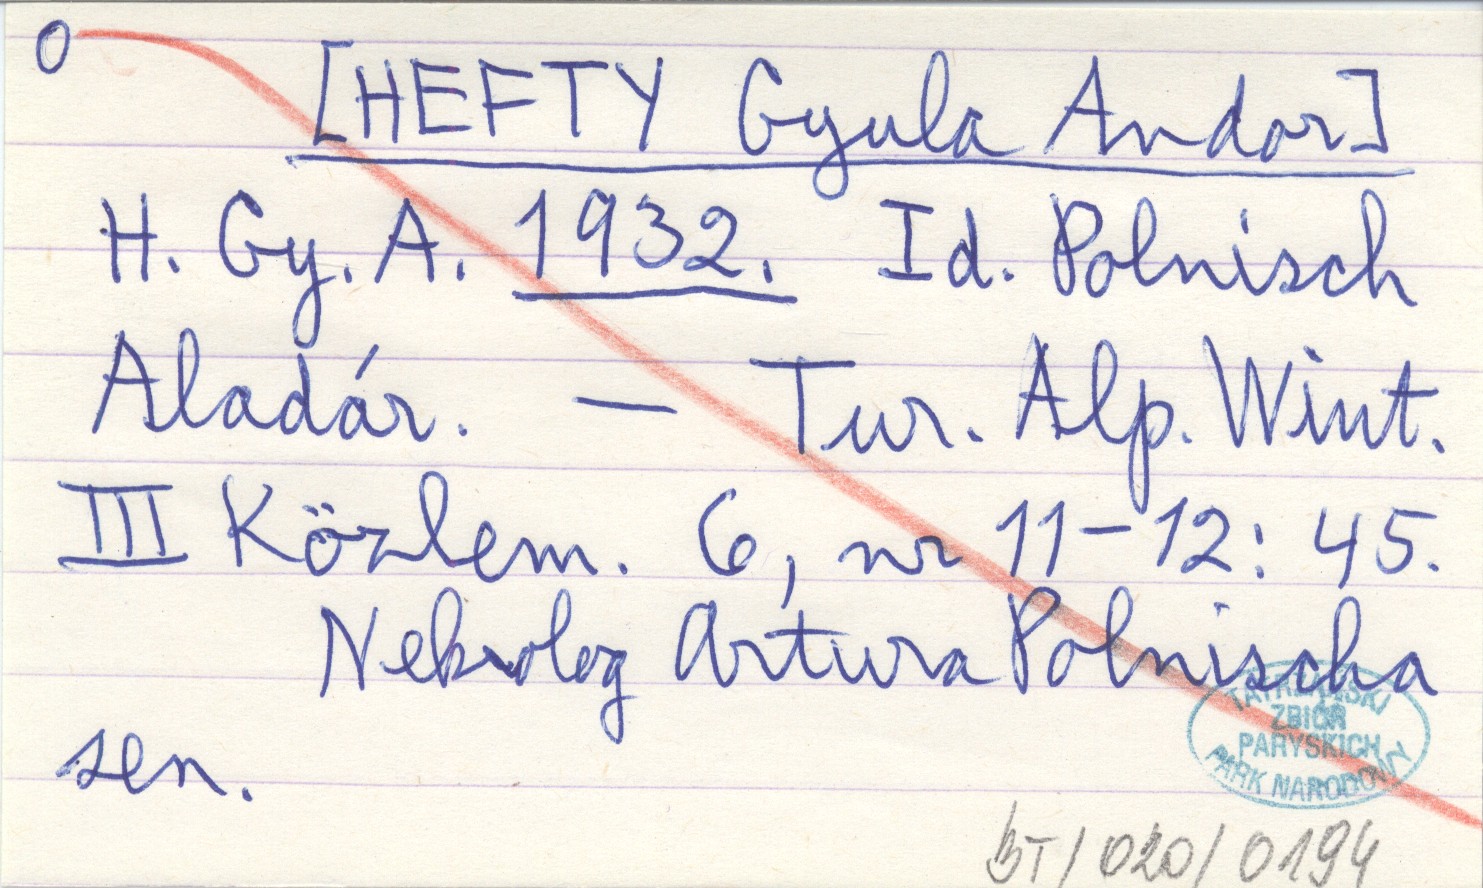 0
[HEFTY Gyula Andor]
H. Gy. A. 1932. Id. Polnisch
Aladár. — Tur. Alp. Wint.
III Közlem. 6, nr 11-12: 45.
Nekrolog Artura Polnischa
sen.
TATRZAŃSKI
ZBIÓR
PARYSKICH
PARK NARODOWY
BT/020/0194